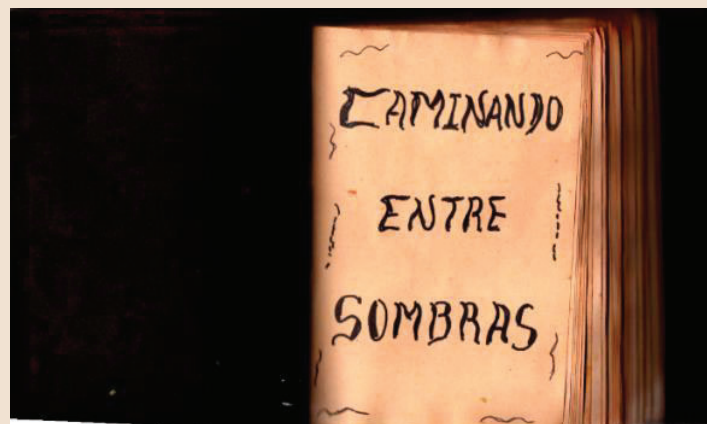 CAMINANDO
ENTRE
SOMBRAS